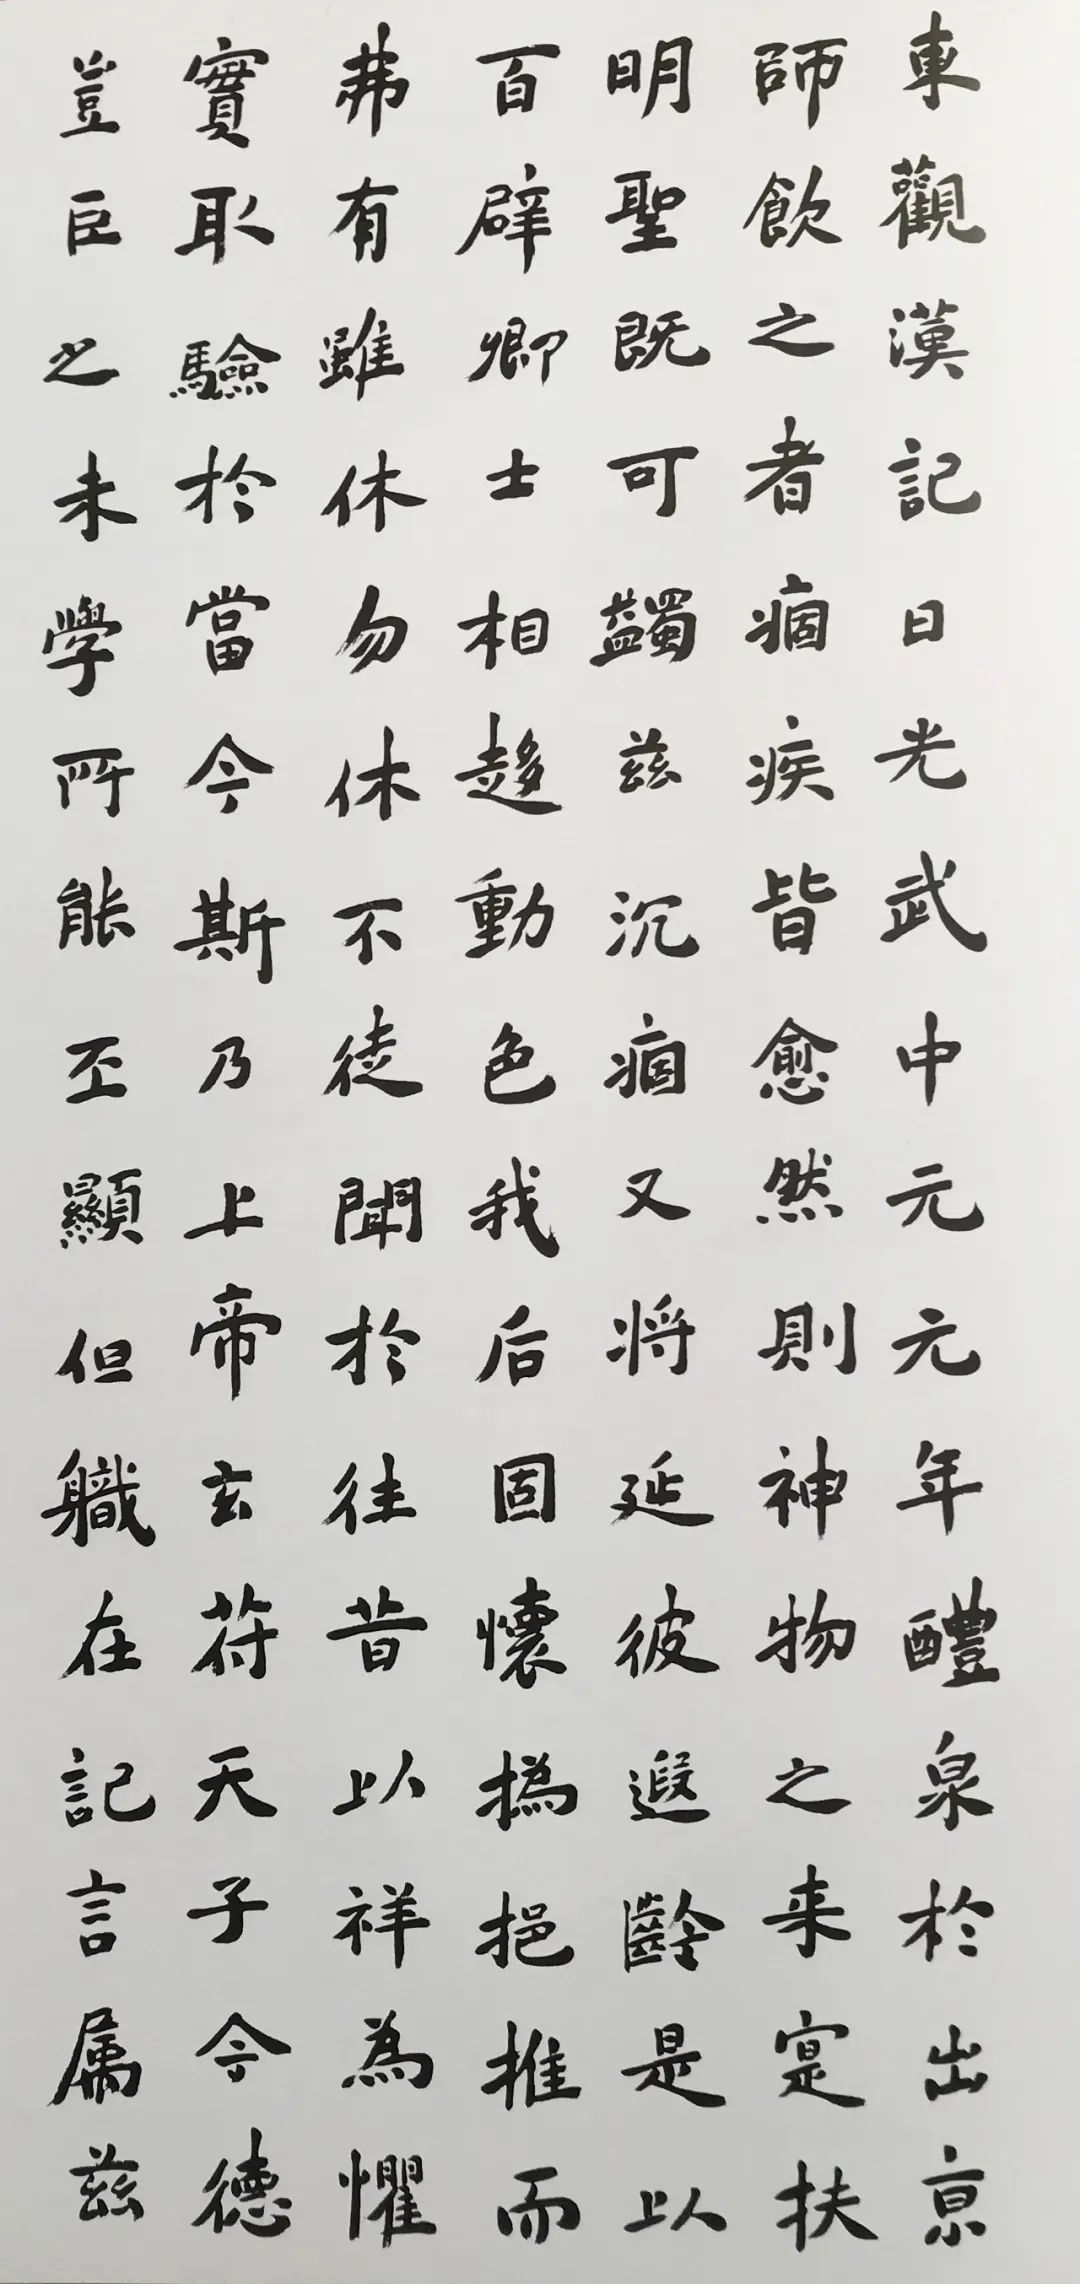 東觀漢記日光武中元元年醴泉於出京
師飲之者痼疾皆愈然則神物之来寔扶
明聖既可蠲兹沉痼又将延彼遐齡是以
百辟卿士相趍動色我后固懷撝挹推而
弗有雖休勿休不徒聞於往昔以祥為懼
實取驗於當今斯乃上帝玄符天子令德
豈臣之未學所能丕顯但職在記言属兹